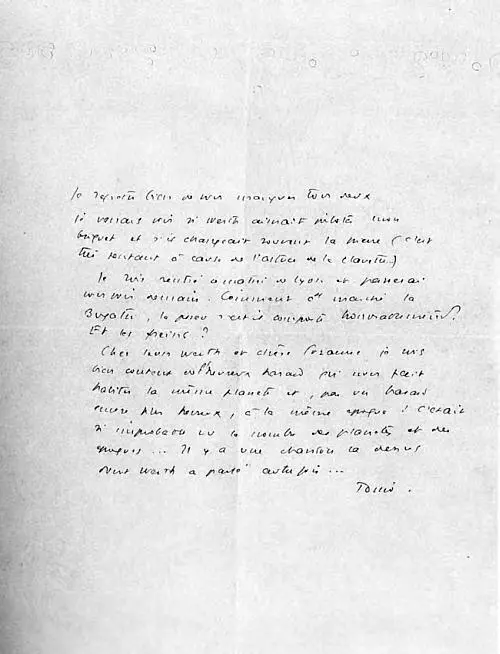 Je regrette bien de vous manquer tous deux
Je voulais voir si Werth aimait piloter mon
briquet et s'il changeait souvent la
très tentant à cause de l'
Je suis rentré ce matin de Lyon et passerai
vous voir demain. Comment a marché la
Bugatti, le s'est-il comporté honorablement?
Et les freins ?
Cher Léon Werth et chère Suzanne je suis
bien content de l'heureux hasard qui nous fait
habiter la même planète et, par un hasard
encore plus heureux, à la même époque ! C'était
si improbable vu le nombre des planètes et des
époques ... Il y a une chanson là dessus
dont Werth a parlé autrefois ...
Tonio.